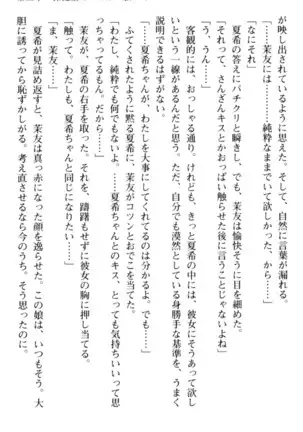 が映し出されているように思えた。そして、自然に言葉が漏れる。
「茉友には……純粋なままでいて欲しかった、から……」
「なにそれ」
夏希の答えにパチクリと瞬きし、でも、茉友は愉快そうに目を細めた。
「それって、さんざんキスとかおっぱい触らせた後に言うことじゃないよね」
「う、うん……」
客観的には、おっしゃる通り。けれども、きっと夏希の中には、彼女にそうあって欲し
いという一線があるんだと思う。ただ、自分でも漠然としている身勝手な基準を、うまく
説明できるはずがない。
「……夏希ちゃんが、わたしを大事にしてくれてるのは分かるよ。でも……」
ふてくされたように黙る夏希に、茉友がコツンとおでこを当てた。
「わたし、純粋でも何でもないよ。……夏希ちゃんとのキス、とっても気持ちいいって思
っちゃってるもん。だから……」
茉友が、夏希の右手を取った。それを、躊躇もせずに彼女の胸に押し当てる。
「触って。わたしも、夏希ちゃんと同じになりたい……」
「ま、茉友……」
夏希が見詰め返すと、茉友は真っ赤になった顔を逸らせた。この娘は、いつもそう。大
胆に誘ってから恥ずかしがる。考え直させるなら今のうち、そう思うのに。